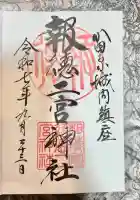 小田原城内鎮座
報徳二宮神社
令和七年九月二十三日